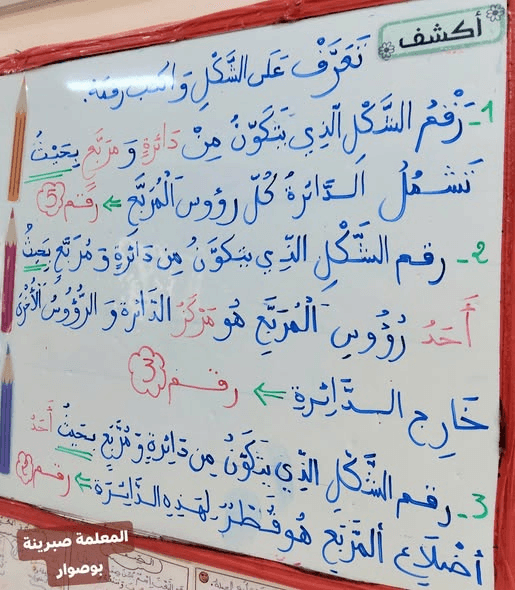 أكشف
تَعَرَّفْ عَلَى الشَّكْلِ وَاكتب رقمَهُ.
1- رَقْمُ الشَّكْلِ الَّذِي يَتَكَوَّنُ مِنْ دَائرةٍ وَ مربّعٍ بِحَيْثُ
تَشْمُلُ الدَّائرةُ كُلّ رؤوس الْمُرَبَّعِ ⇐ رقم 5
2- رقم الشَّكْلِ الذِّي يتكوَّنُ مِن دَائرةٍ وَ مُرَبَّعٍ بحيثُ
أَحَدُ رُؤُوسِ الْمُرَبَّعِ هُوَ مَرْكَزُ الدَّائرةِ وَ الرُّؤُوسُ الْأُخْرَى
خَارِج الـدَّائِرةِ ⇐ رقـم 3
3- رقم الشَّكْلِ الذِّي يَتَكَوَّنُ مِن دَائِرةٍ وَ مُرَبَّعٍ بحيثُ أَحَدُ
أضْلاَعِ المُرَبَّعِ هُوَ قُطْرٌ لِهَذِهِ الدَّائِرَةِ ⇐ رقم
المعلمة صبرينة
بوصوار